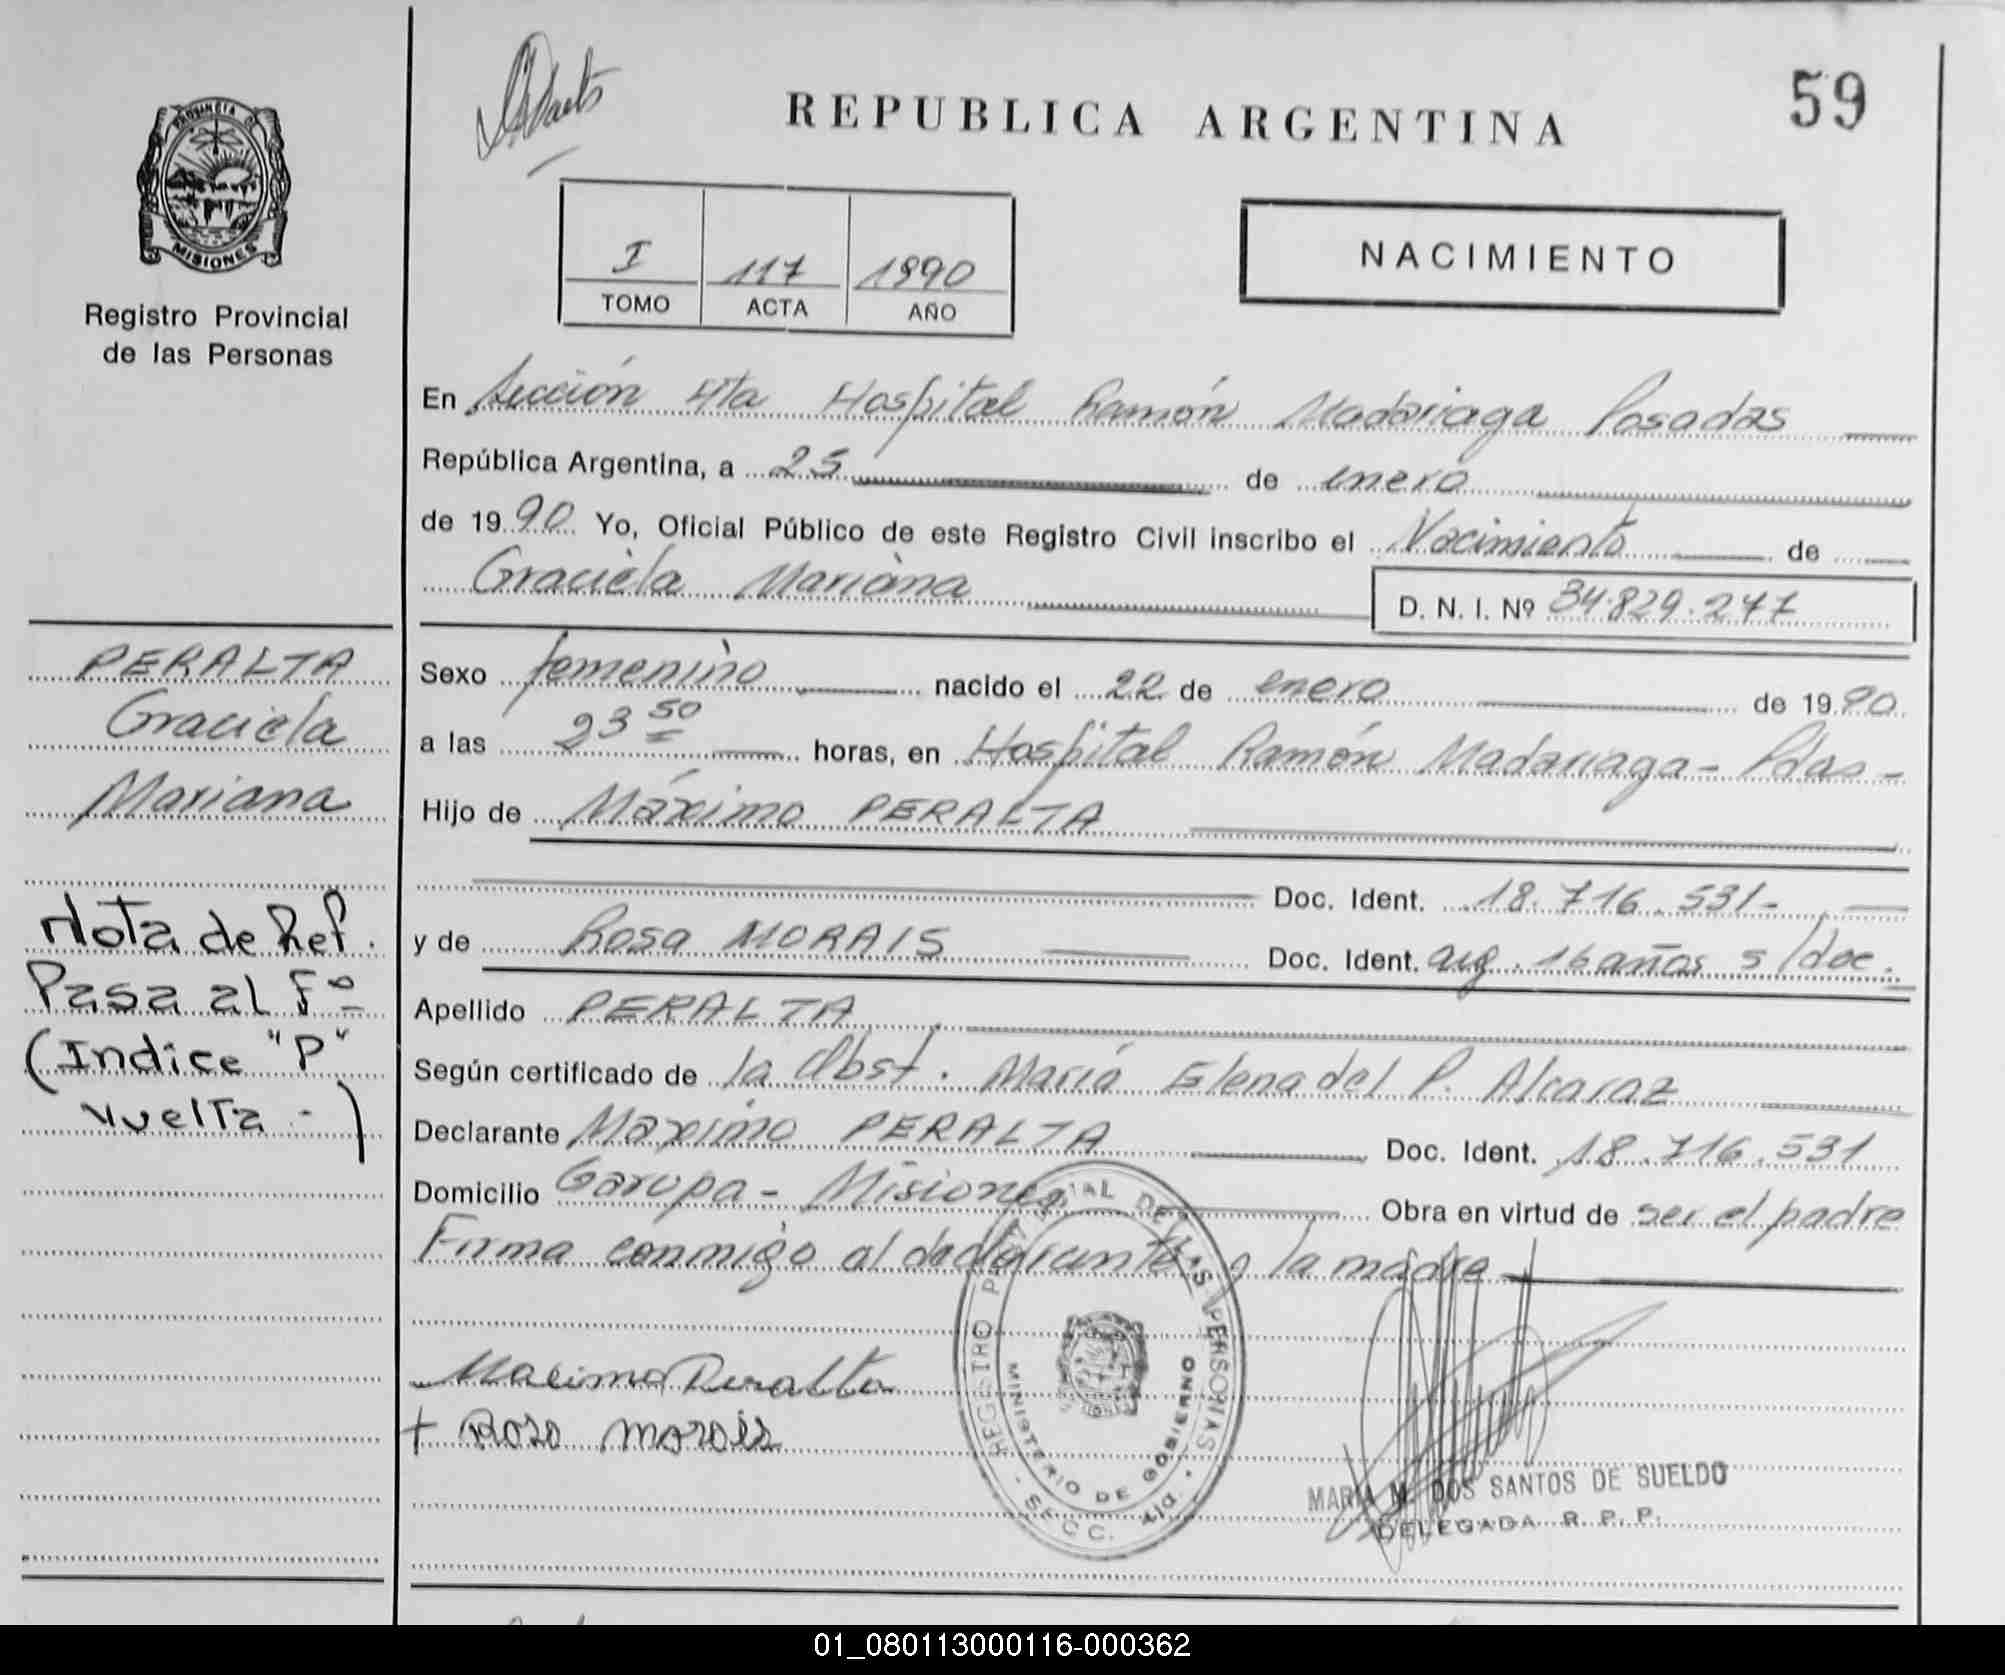 59
REPUBLICA ARGENTINA
PROVINCIA DE
MISIONES
Registro Provincial
de las Personas
I 117 1990
TOMO ACTA AÑO
NACIMIENTO
En Sección 4ta Hospital Ramón Madariaga Posadas
República Argentina, a 25 de enero
de 1990 Yo, Oficial Público de este Registro Civil inscribo el Nacimiento de
Graciela Mariana D. N. I. Nº 34.829.277
Sexo femenino nacido el 22 de enero de 1990
a las 23 50 horas, en Hospital Ramón Madariaga - Pdas -
Hijo de Máximo PERALTA
Doc. Ident. 18.716.531-
y de Rosa MORAIS Doc. Ident. arg. 16 años s/doc.
Apellido PERALTA
Según certificado de la Obst. María Elena del P. Alcaraz
Declarante Máximo PERALTA Doc. Ident. 18.716.531
Domicilio Garupa - Misiones Obra en virtud de ser el padre
Firma conmigo al declarante y la madre
Maximo Peralta
+ Roso morais
REGISTRO PROVINCIAL DE LAS PERSONAS
MINISTERIO DE GOBIERNO
- SECC. 4ta. -
MARIA M. DOS SANTOS DE SUELDO
DELEGADA R. P. P.
PERALTA
Graciela
Mariana
Nota de Ref.
Pasa al Fº
(Indice "P"
vuelta -)
01_080113000116-000362